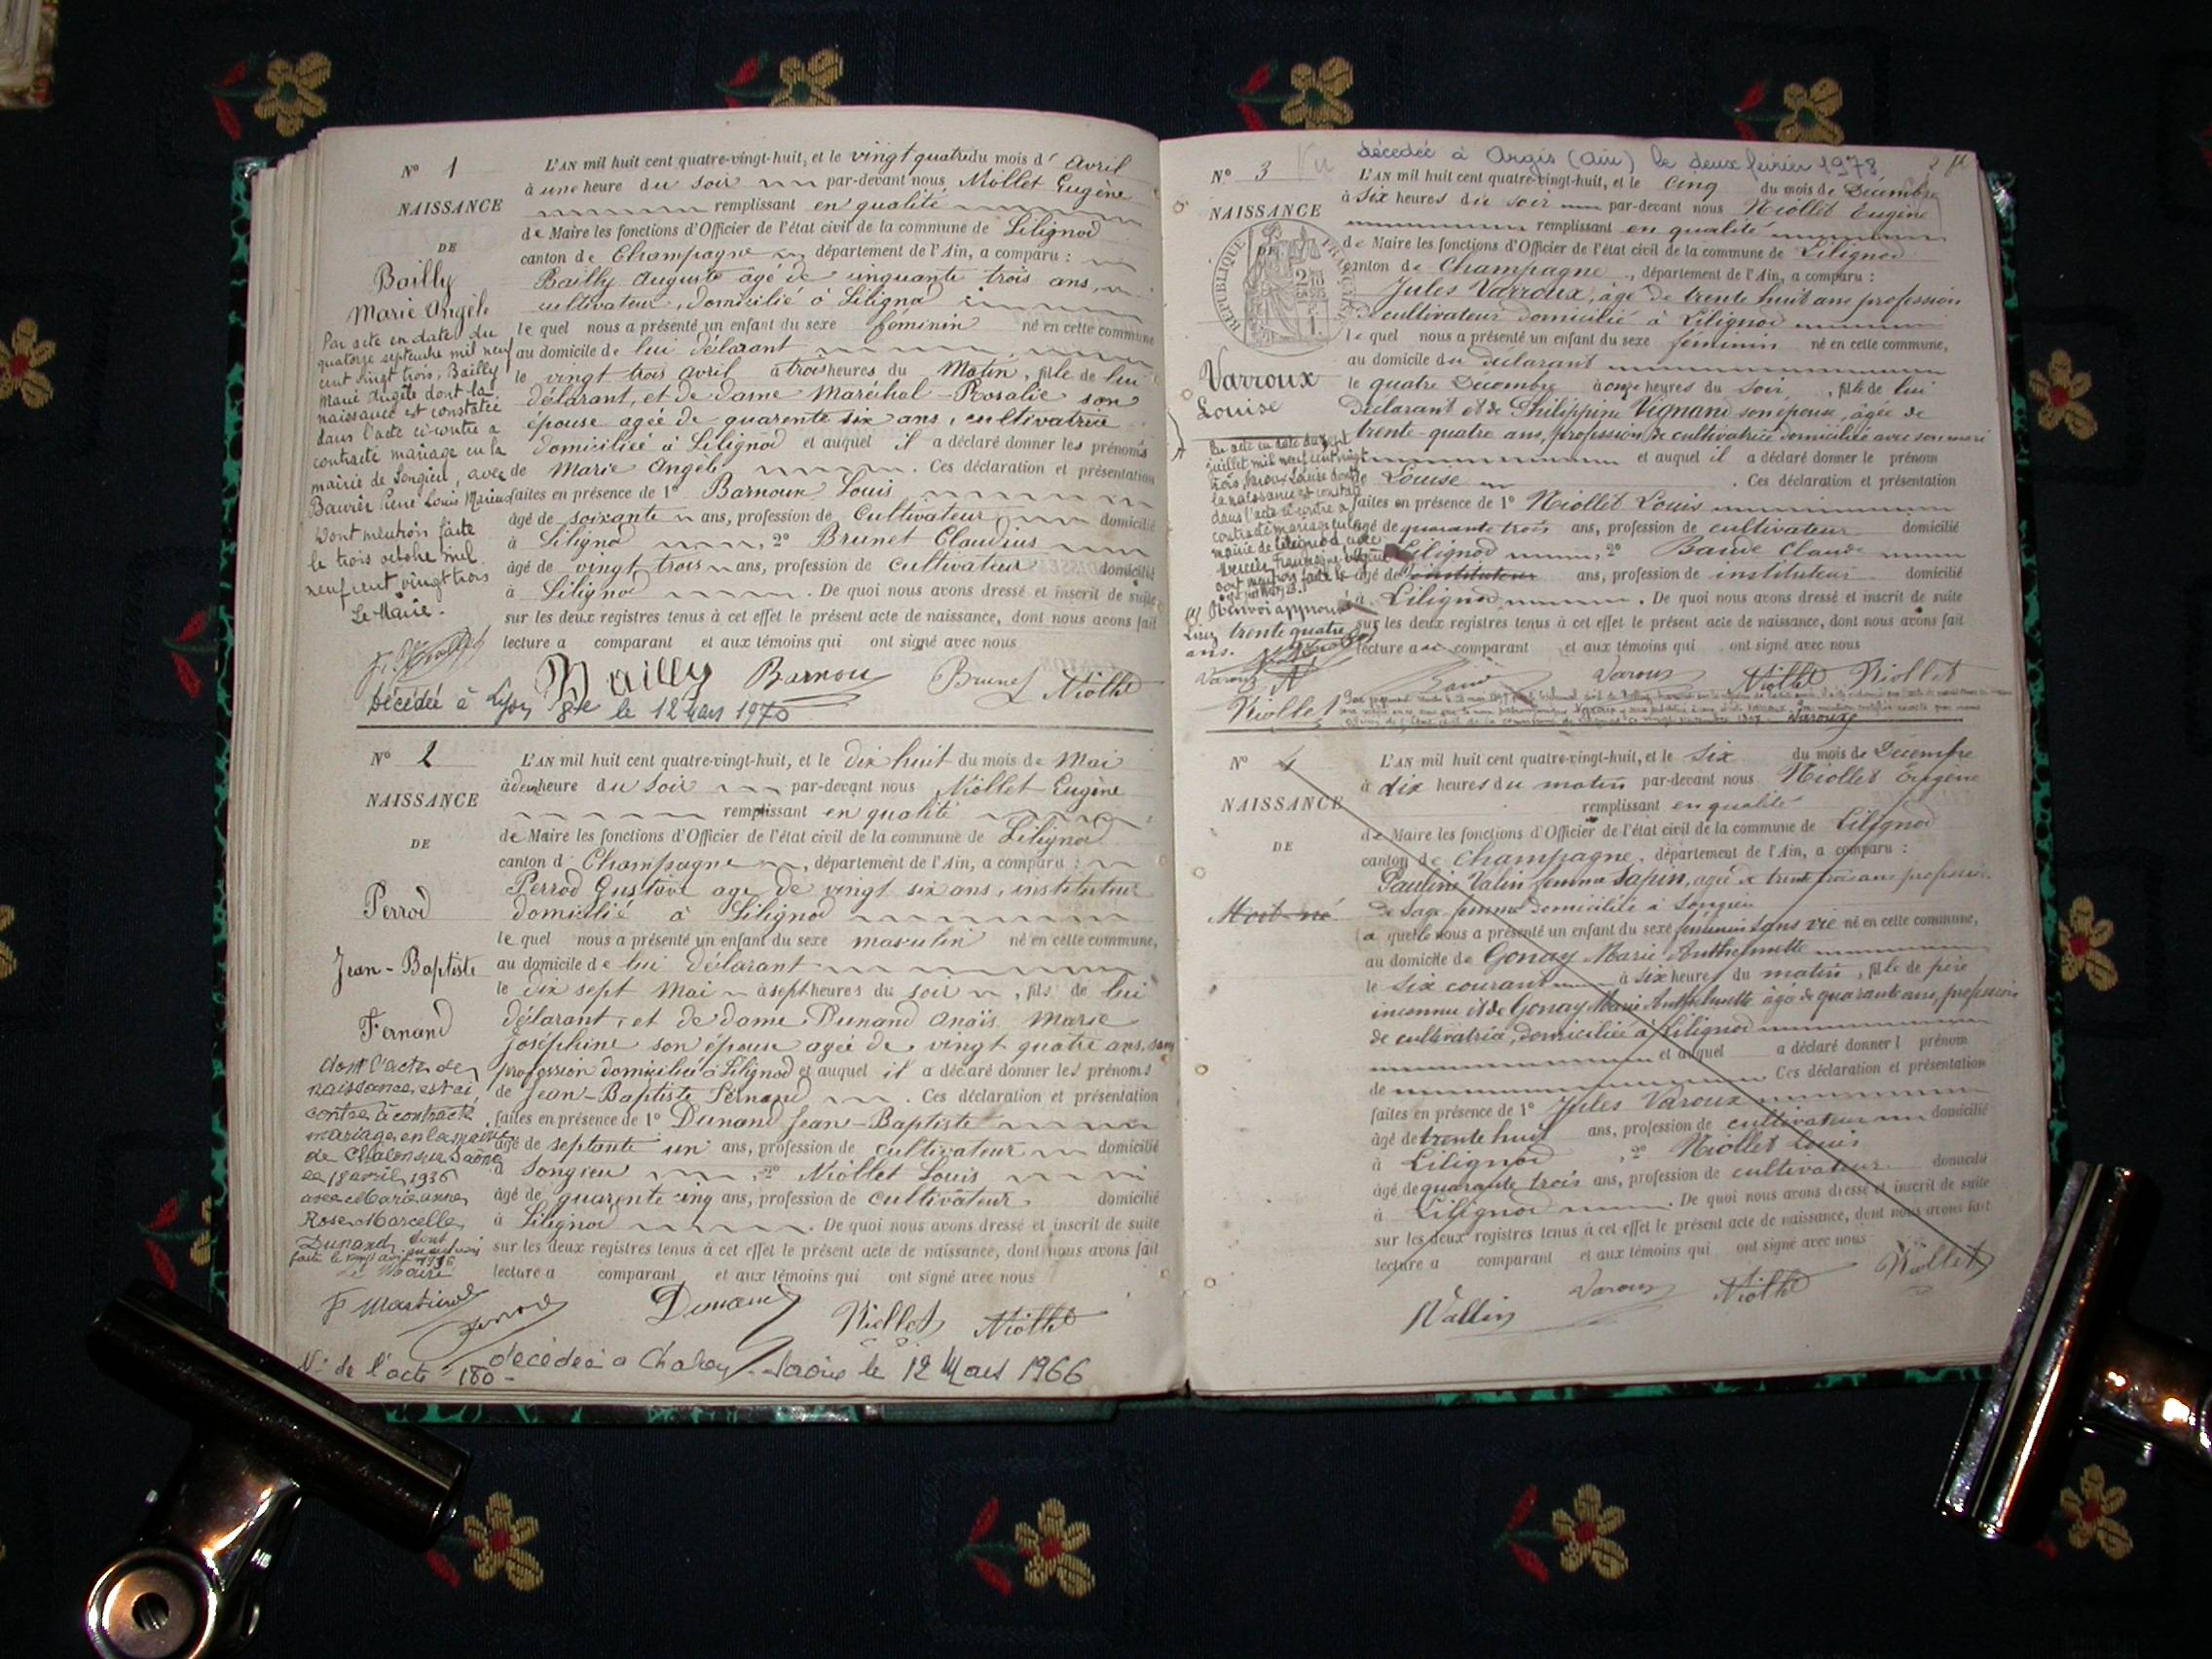 N° 1
NAISSANCE
DE
Bailly
Marie Angèle
Par acte en date du
quatorze septembre mil neuf
cent vingt trois, Bailly
Marie Angèle dont la
naissance est constatée
dans l'acte ci-contre a
contracté mariage en la
mairie de Songieu, avec
Pierre Louis Marius
Dont mention faite
le trois octobre mil
neuf cent vingt trois
Le Maire.
L'AN mil huit cent quatre-vingt-huit, et le vingt quatre du mois d' Avril
à une heure du soir par-devant nous Niollet Eugène
remplissant en qualité
de Maire les fonctions d'Officier de l'état civil de la commune de Lilignod
canton de Champagne département de l'Ain, a comparu :
Bailly Auguste âgé de cinquante trois ans,
cultivateur, domicilié à Lilignod
le quel nous a présenté un enfant du sexe féminin né en cette commune
au domicile de lui déclarant
le vingt trois avril à trois heures du Matin, fille de lui
déclarant, et de dame Maréchal Rosalie son
épouse agée de quarente six ans, cultivatrice
domiciliée à Lilignod et auquel il a déclaré donner les prénoms
de Marie Angèle . Ces déclaration et présentation
faites en présence de 1° Barnoux Louis
âgé de soixante ans, profession de Cultivateur domicilié
à Lilignod , 2° Brunet Claudius
âgé de vingt trois ans, profession de Cultivateur domicilié
à Lilignod . De quoi nous avons dressé et inscrit de suite
sur les deux registres tenus à cet effet le présent acte de naissance, dont nous avons fait
lecture a comparant et aux témoins qui ont signé avec nous
Bailly Barnou Brunet Niollet
Décédée à Lyon 8e le 12 Mars 1970
N° 2
NAISSANCE
DE
Perrod
Jean-Baptiste
Fernand
dont l'acte de
naissance est ci
contre à contracté
mariage en la mairie
de Chalon sur Saône
le 18 avril 1936
avec Marie anne
Rose Marcelle
Dunand dont
L'AN mil huit cent quatre-vingt-huit, et le dix huit du mois de Mai
à deux heure du soir par-devant nous Niollet Eugène
remplissant en qualité
de Maire les fonctions d'Officier de l'état civil de la commune de Lilignod
canton d Champagne , département de l'Ain, a comparu :
Perrod Gustave agé de vingt six ans, instituteur
domicilié à Lilignod
le quel nous a présenté un enfant du sexe masculin né en cette commune,
au domicile de lui déclarant
le dix sept Mai à sept heures du soir , fils de lui
déclarant, et de dame Dunand Anaïs Marie
Joséphine son épouse agée de vingt quatre ans, sans
profession domiciliée à Lilignod et auquel il a déclaré donner les prénoms
de Jean-Baptiste Fernand . Ces déclaration et présentation
faites en présence de 1° Dunand Jean-Baptiste
âgé de septante un ans, profession de cultivateur domicilié
à Songieu , 2° Niollet Louis
âgé de quarente cinq ans, profession de cultivateur domicilié
à Lilignod . De quoi nous avons dressé et inscrit de suite
sur les deux registres tenus à cet effet le présent acte de naissance, dont nous avons fait
lecture a comparant et aux témoins qui ont signé avec nous
Perrod Dunand Niollet Niollet
N° de l'acte 180 - décédé à Chalon s. Saône le 12 Mars 1966
décédée à Argis (Ain) le deux février 1978
N° 3 Vu
NAISSANCE
DE
RÉPUBLIQUE FRANÇAISE
Varroux
Louise
L'AN mil huit cent quatre-vingt-huit, et le cinq du mois de Décembre
à six heures du soir par-devant nous Niollet Eugène
remplissant en qualité
de Maire les fonctions d'Officier de l'état civil de la commune de Lilignod
canton de Champagne , département de l'Ain, a comparu :
Jules Varroux, âgé de trente huit ans profession
de cultivateur domicilié à Lilignod
le quel nous a présenté un enfant du sexe féminin né en cette commune,
au domicile du déclarant
le quatre Décembre à onze heures du soir , fille de lui
Déclarant et de Philippine Vignand son épouse, âgée de
trente-quatre ans, profession de cultivatrice domiciliée avec son mari
et auquel il a déclaré donner le prénom
de Louise . Ces déclaration et présentation
faites en présence de 1° Niollet Louis
âgé de quarante trois ans, profession de cultivateur domicilié
à Lilignod , 2° Baude Claude
âgé de instituteur ans, profession de instituteur domicilié
à Lilignod . De quoi nous avons dressé et inscrit de suite
sur les deux registres tenus à cet effet le présent acte de naissance, dont nous avons fait
lecture au comparant et aux témoins qui ont signé avec nous
Renvoi approuvé
Lire trente quatre
ans.
Varoux Niollet Niollet
Niollet
Varoux
N° 4
NAISSANCE
DE
Mort-né
L'AN mil huit cent quatre-vingt-huit, et le six du mois de Décembre
à dix heures du matin par-devant nous Niollet Eugène
remplissant en qualité
de Maire les fonctions d'Officier de l'état civil de la commune de Lilignod
canton de Champagne, département de l'Ain, a comparu :
Pauline Valin femme Sapin, agée de trente trois ans profession
de Sage femme domiciliée à Songieu
la quelle nous a présenté un enfant du sexe féminin sans vie né en cette commune,
au domicile de Gonay Marie Anthelmette
le six courant à six heures du matin, fille de père
inconnu et de Gonay Marie Anthelmette âgée de quarante ans, profession
de cultivatrice, domiciliée à Lilignod
et auquel a déclaré donner l prénom
de Ces déclaration et présentation
faites en présence de 1° Jules Varoux
âgé de trente huit ans, profession de cultivateur domicilié
à Lilignod , 2° Niollet Louis
âgé de quarante trois ans, profession de cultivateur domicilié
à Lilignod . De quoi nous avons dressé et inscrit de suite
sur les deux registres tenus à cet effet le présent acte de naissance, dont nous avons fait
lecture a comparant et aux témoins qui ont signé avec nous
Vallin Varoux Niollet Niollet